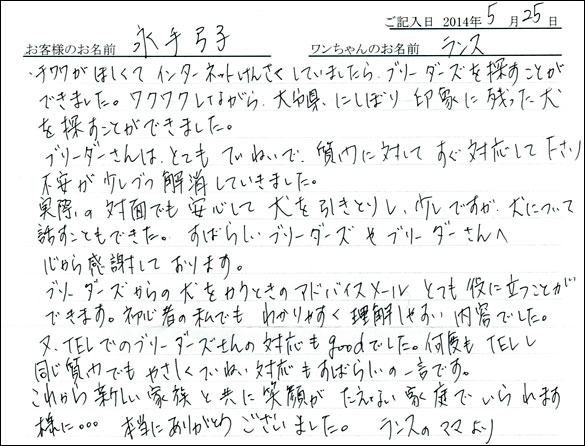 ご記入日 2014年 5月 25日
お客様のお名前 永手弓子 ワンちゃんのお名前 ランス
・チワワがほしくて インターネットけんさくしていましたら、ブリーダーズを探すことが
できました。ワクワクしながら、大分県、にしぼり 印象に残った犬
を探すことができました。
ブリーダーさんは、とても ていねいで、質内に対して すぐ対応して下さり
不安が少しづつ解消していきました。
実際の対面でも安心して犬を引きとりし、少しですが、犬について
話すこともできた。すばらしいブリーダーズやブリーダーさんへ
心から感謝しております。
ブリーダーズからの犬をかうときのアドバイスメール とても役に立つことが
できます。初心者の私でも わかりやすく理解しやすい内容でした。
又、TELでのブリーダーズさんの対応もgoodでした。何度もTELし
同じ質内でもやさしくていねい対応もすばらしいの一言です。
これから新しい家族と共に笑顔がたえない家庭でいられます
様に… 本当にありがとうございました。 ランスのママより